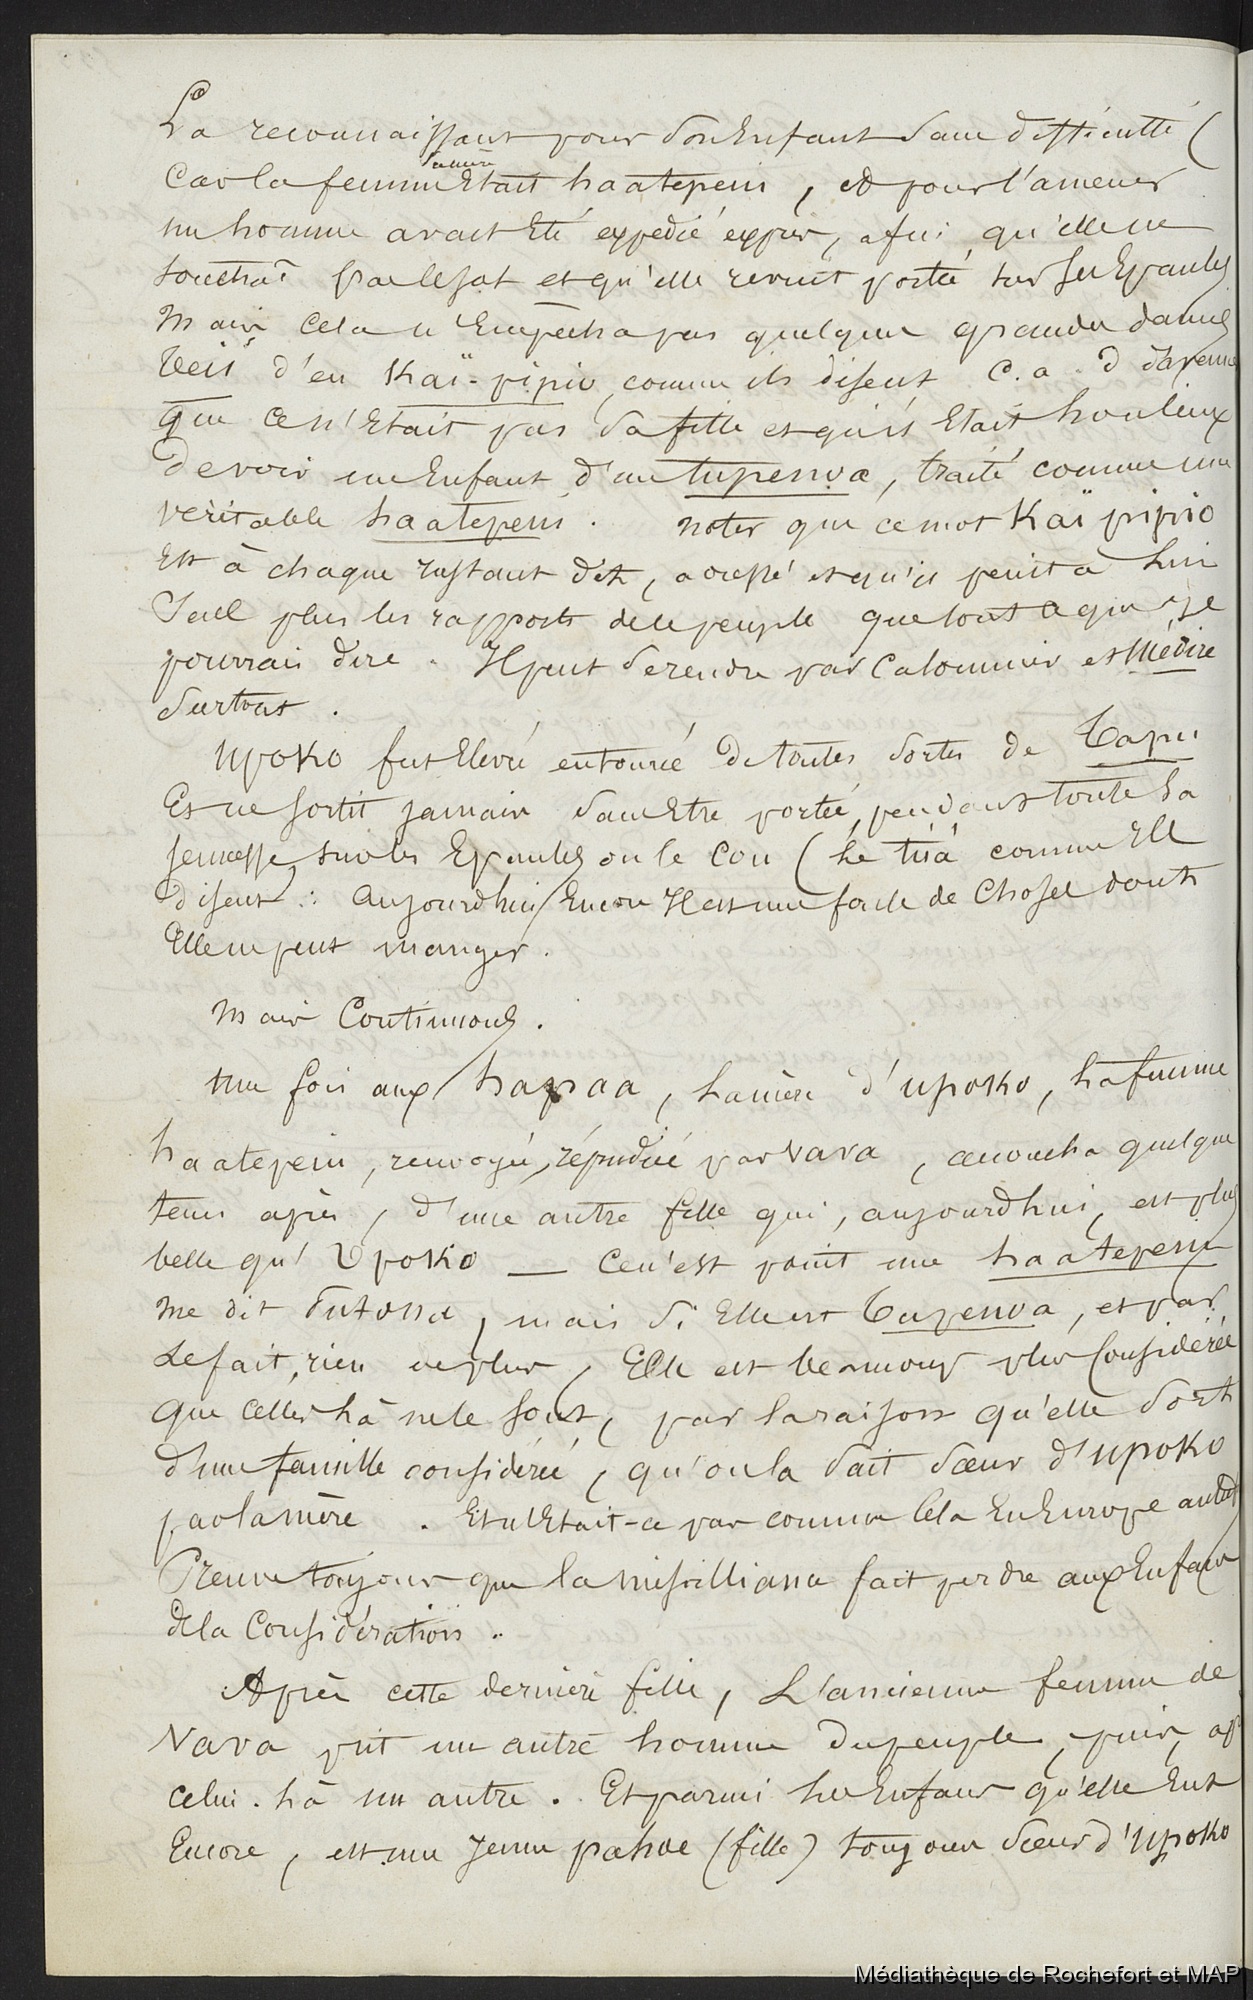 La reconnaissant pour son Enfant sans difficulté (
Car la femme Etait haatepeiu, Et pour l'amener
la mère
un homme avait Eté expédié exprès, afin qu'elle ne
touchât pas le sol et qu'elle revint portée sur ses Epaules
Mais cela n'Empêcha pas quelques grandes dames
Teii d'en Kaï-pipio, comme ils disent, C.a.d d'
que ce n'Etait pas sa fille et qu'il Etait honteux
de voir un Enfant d'un tupenoa, traité comme une
véritable haatepeiu. Noter que ce mot Kaï pipio
Est à chaque instant dit, adressé et qu'il peint à lui
Seul plus les rapports de ce peuple que tout ce que je
pourrais dire. Il peut se rendre par Calomnier et Médire
surtout.
Upoko fut Elevée entourée de toutes sortes de Tapu
Et ne sortit jamais sans Etre portée, pendant toute sa
jeunesse, sur les Epaules ou le Cou (he tuá comme Ils
disent) : aujourd'hui Encore Il est une foule de Choses dont
Elle ne peut manger.
Mais Continuons.
Une fois aux hapaa, la mère d'upoko, la femme
haatepeiu, renvoyée, répudiée par Vava, accoucha quelque
tems après, d'une autre fille qui, aujourd'hui, est plus
belle qu'Upoko — Ce n'est point une haatepeiu
me dit Tutona, mais si Elle est Tupenoa, et par
Le fait, rien de plus, Elle est beaucoup plus Considérée
que celles là ne le sont, par la raison qu'elle sort
d'une famille considérée, qu'on la sait sœur d'upoko
par la mère. Et n'Etait-ce pas comme Cela En Europe autref
Preuve toujours que la mésalliance fait perdre aux Enfans
de la Considération.
Après cette dernière fille, L'ancienne femme de
Vava prit un autre homme du peuple, puis, ap
celui-là un autre. Et parmi les Enfans qu'elle Eut
Encore, est une jeune pahoe (fille) toujours sœur d'upoko
Médiathèque de Rochefort et MAP